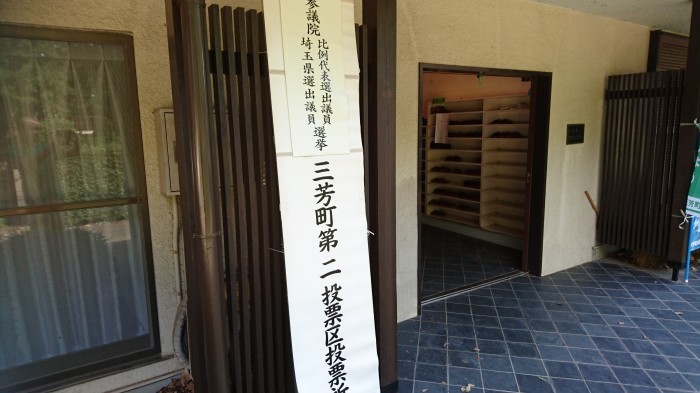 参議院
比例代表選出議員
埼玉県選出議員
選挙
三芳町第二投票区投票所
芳町